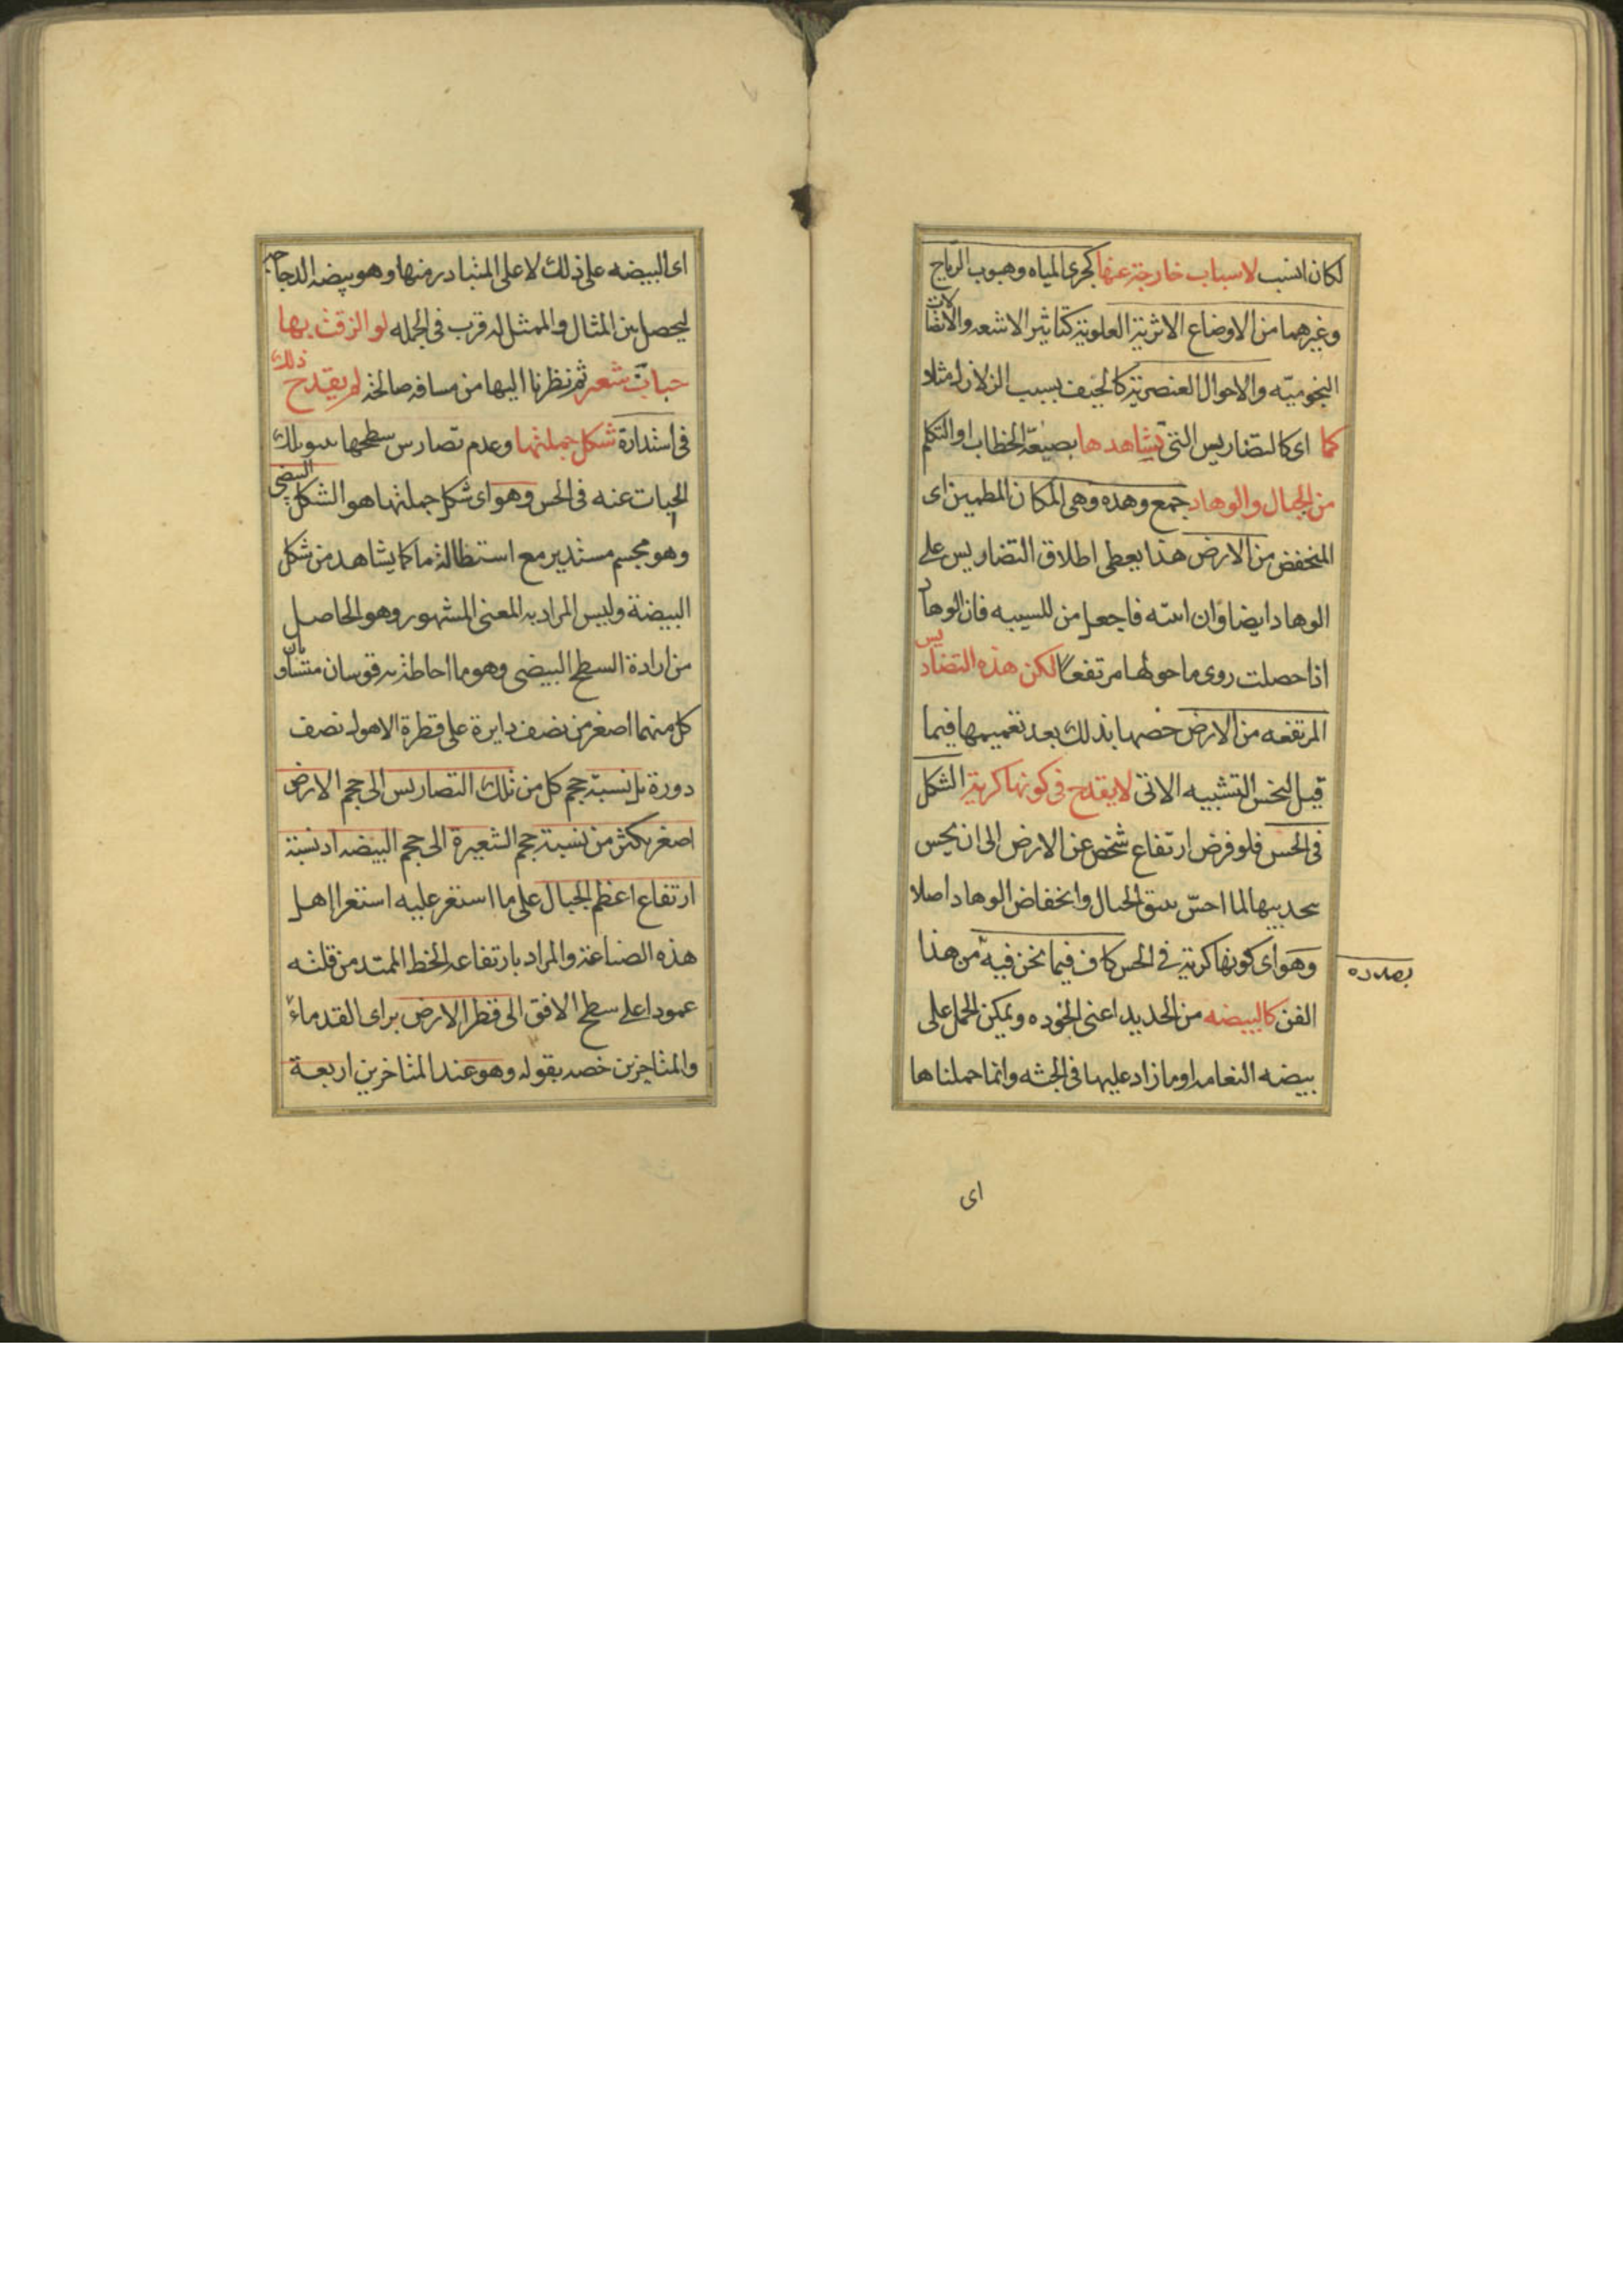 لكان انسب لاسباب خارجة عنها كجرى المياه وهبوب الرياح
وغيرهما من الاوضاع الاثرية العلوية كتاثير الاشعه والاتصالات
النجوميّه والاحوال العنصرية كالخسف بسبب الزلازل مثلا
كما اى كالتضاريس التى تشاهدها بصيغة الخطاب او التكلم
من الجبال والوهاد جمع وهده وهى المكان المطمين اى
المنخفض من الارض هذا يعطى اطلاق التضاريس على
الوهاد ايضا وان فاجعل من للسببيه فان الوهاد
اذا حصلت روى ما حولها مرتفعًا لكن هذه التضاريس
المرتفعه من الارض خصها بذلك بعد تعميمها فيما
قبل لتشبيه الاتى لا يقدح فى كونها كرية الشكل
فى الحس فلو فرض ارتفاع شخص عن الارض الى ان يحس
بتحديبها لما احسّ الجبال وانخفاض الوهاد اصلا
وهو اى كونها كرية فى الحس كاف فيما نحن فيه من هذا
بصدده
الفن كالبيضه من الحديد اعنى الخوده ويمكن الحمل على
بيضه النعامه او ما زاد عليها فى الجثه وانما حملناها
اى
اى البيضه على ذلك لا على المتبادر منها وهو بيضه الدجاجه
ليحصل بين المثال والممثل له قرب فى الجمله لو الزقت بها
حبات شعير ثم نظرنا اليها من مسافه صالحة لم يقدح ذلك
فى استدارة شكل جملتها وعدم تضارس سطحها تلك
الحبات عنه فى الحس وهو اى شكل جملتها هو الشكل البيضى
وهو مجسم مستدير مع استطالة ما كما يشاهد من شكل
البيضة وليس المراد به المعنى المشهور وهو الحاصل
من ادارة السطح البيضى وهو ما احاطة به قوسان متساويان
كل منهما اصغر من نصف دايرة على قطرة الاهول نصف
دورة بل نسبة حجم كل من تلك التضاريس الى حجم الارض
اصغر بكثر من نسبة حجم الشعيرة الى حجم البيضه اذ نسبة
ارتفاع اعظم الجبال على ما استقر عليه استقرا اهل
هذه الصناعة والمراد بارتفاعه الخط الممتد من قلته
عمودا على سطح الافق الى قطر الارض براى القدماءٔ
والمتاخرين خصه بقوله وهو عند المتاخرين اربعة